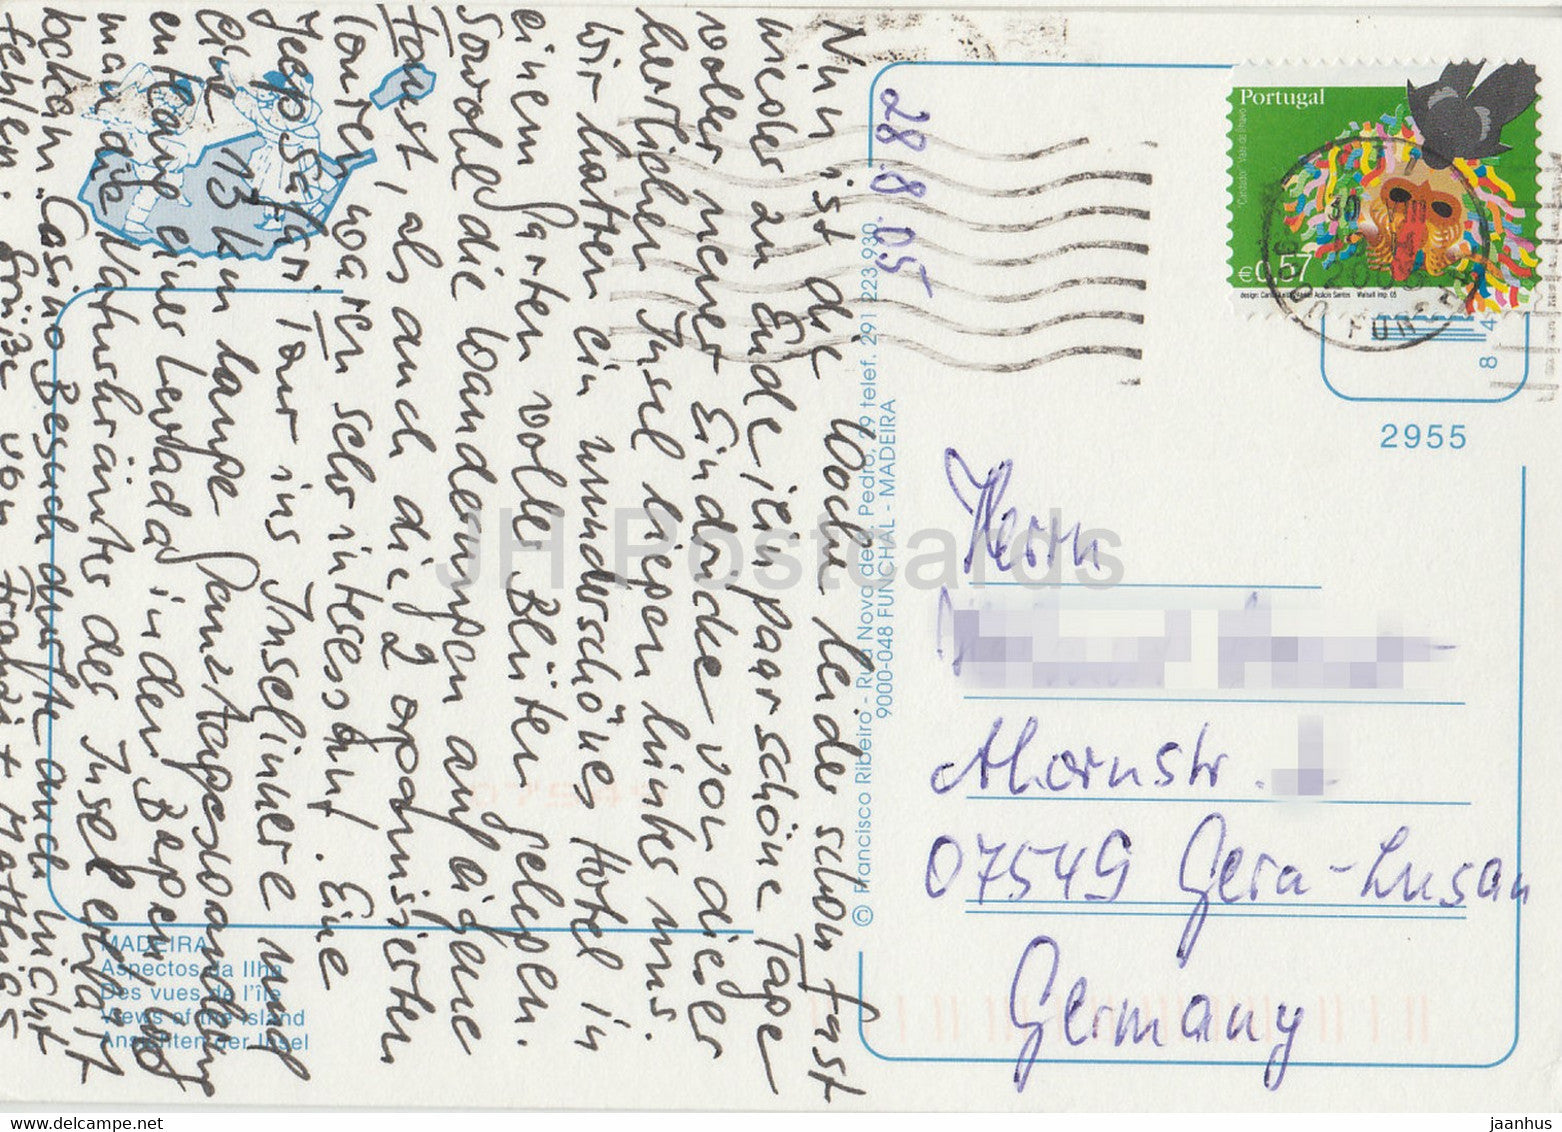 Nun ist die Woche leider schon fast
wieder zu Ende, ein paar schöne Tage
voller neuer Eindrücke von dieser
herrlichen Insel liegen hinter uns.
Wir hatten ein wunderschönes Hotel in
einem Garten voller Blüten gelegen.
Sowohl die Wanderungen auf eigene
Faust, als auch die 2 organisierten
Touren waren sehr interessant. Eine
Jeepsafari Tour ins Inselinnere und
eine 13 km lange Ganztageswanderung
entlang einer Levada in den Bergen, wo
man die Naturkräuter der Insel erklärt
bekam. Casino Besuch durfte auch nicht
fehlen. Grüße von Frank + Matthias
28.8.05
Portugal
Cardador. Vale de Ilhavo
€0,57
30
2005
FUNCHAL
2955
84
Herrn
Ahornstr.
07549 Gera-Lusan
Germany
© Francisco Ribeiro - Rua Nova de S. Pedro, 29 telef. 291 223 930
9000-048 FUNCHAL - MADEIRA
MADEIRA
Aspectos da Ilha
Des vues de l'île
Views of the Island
Ansichten der Insel
JH Postcards
jaanhus